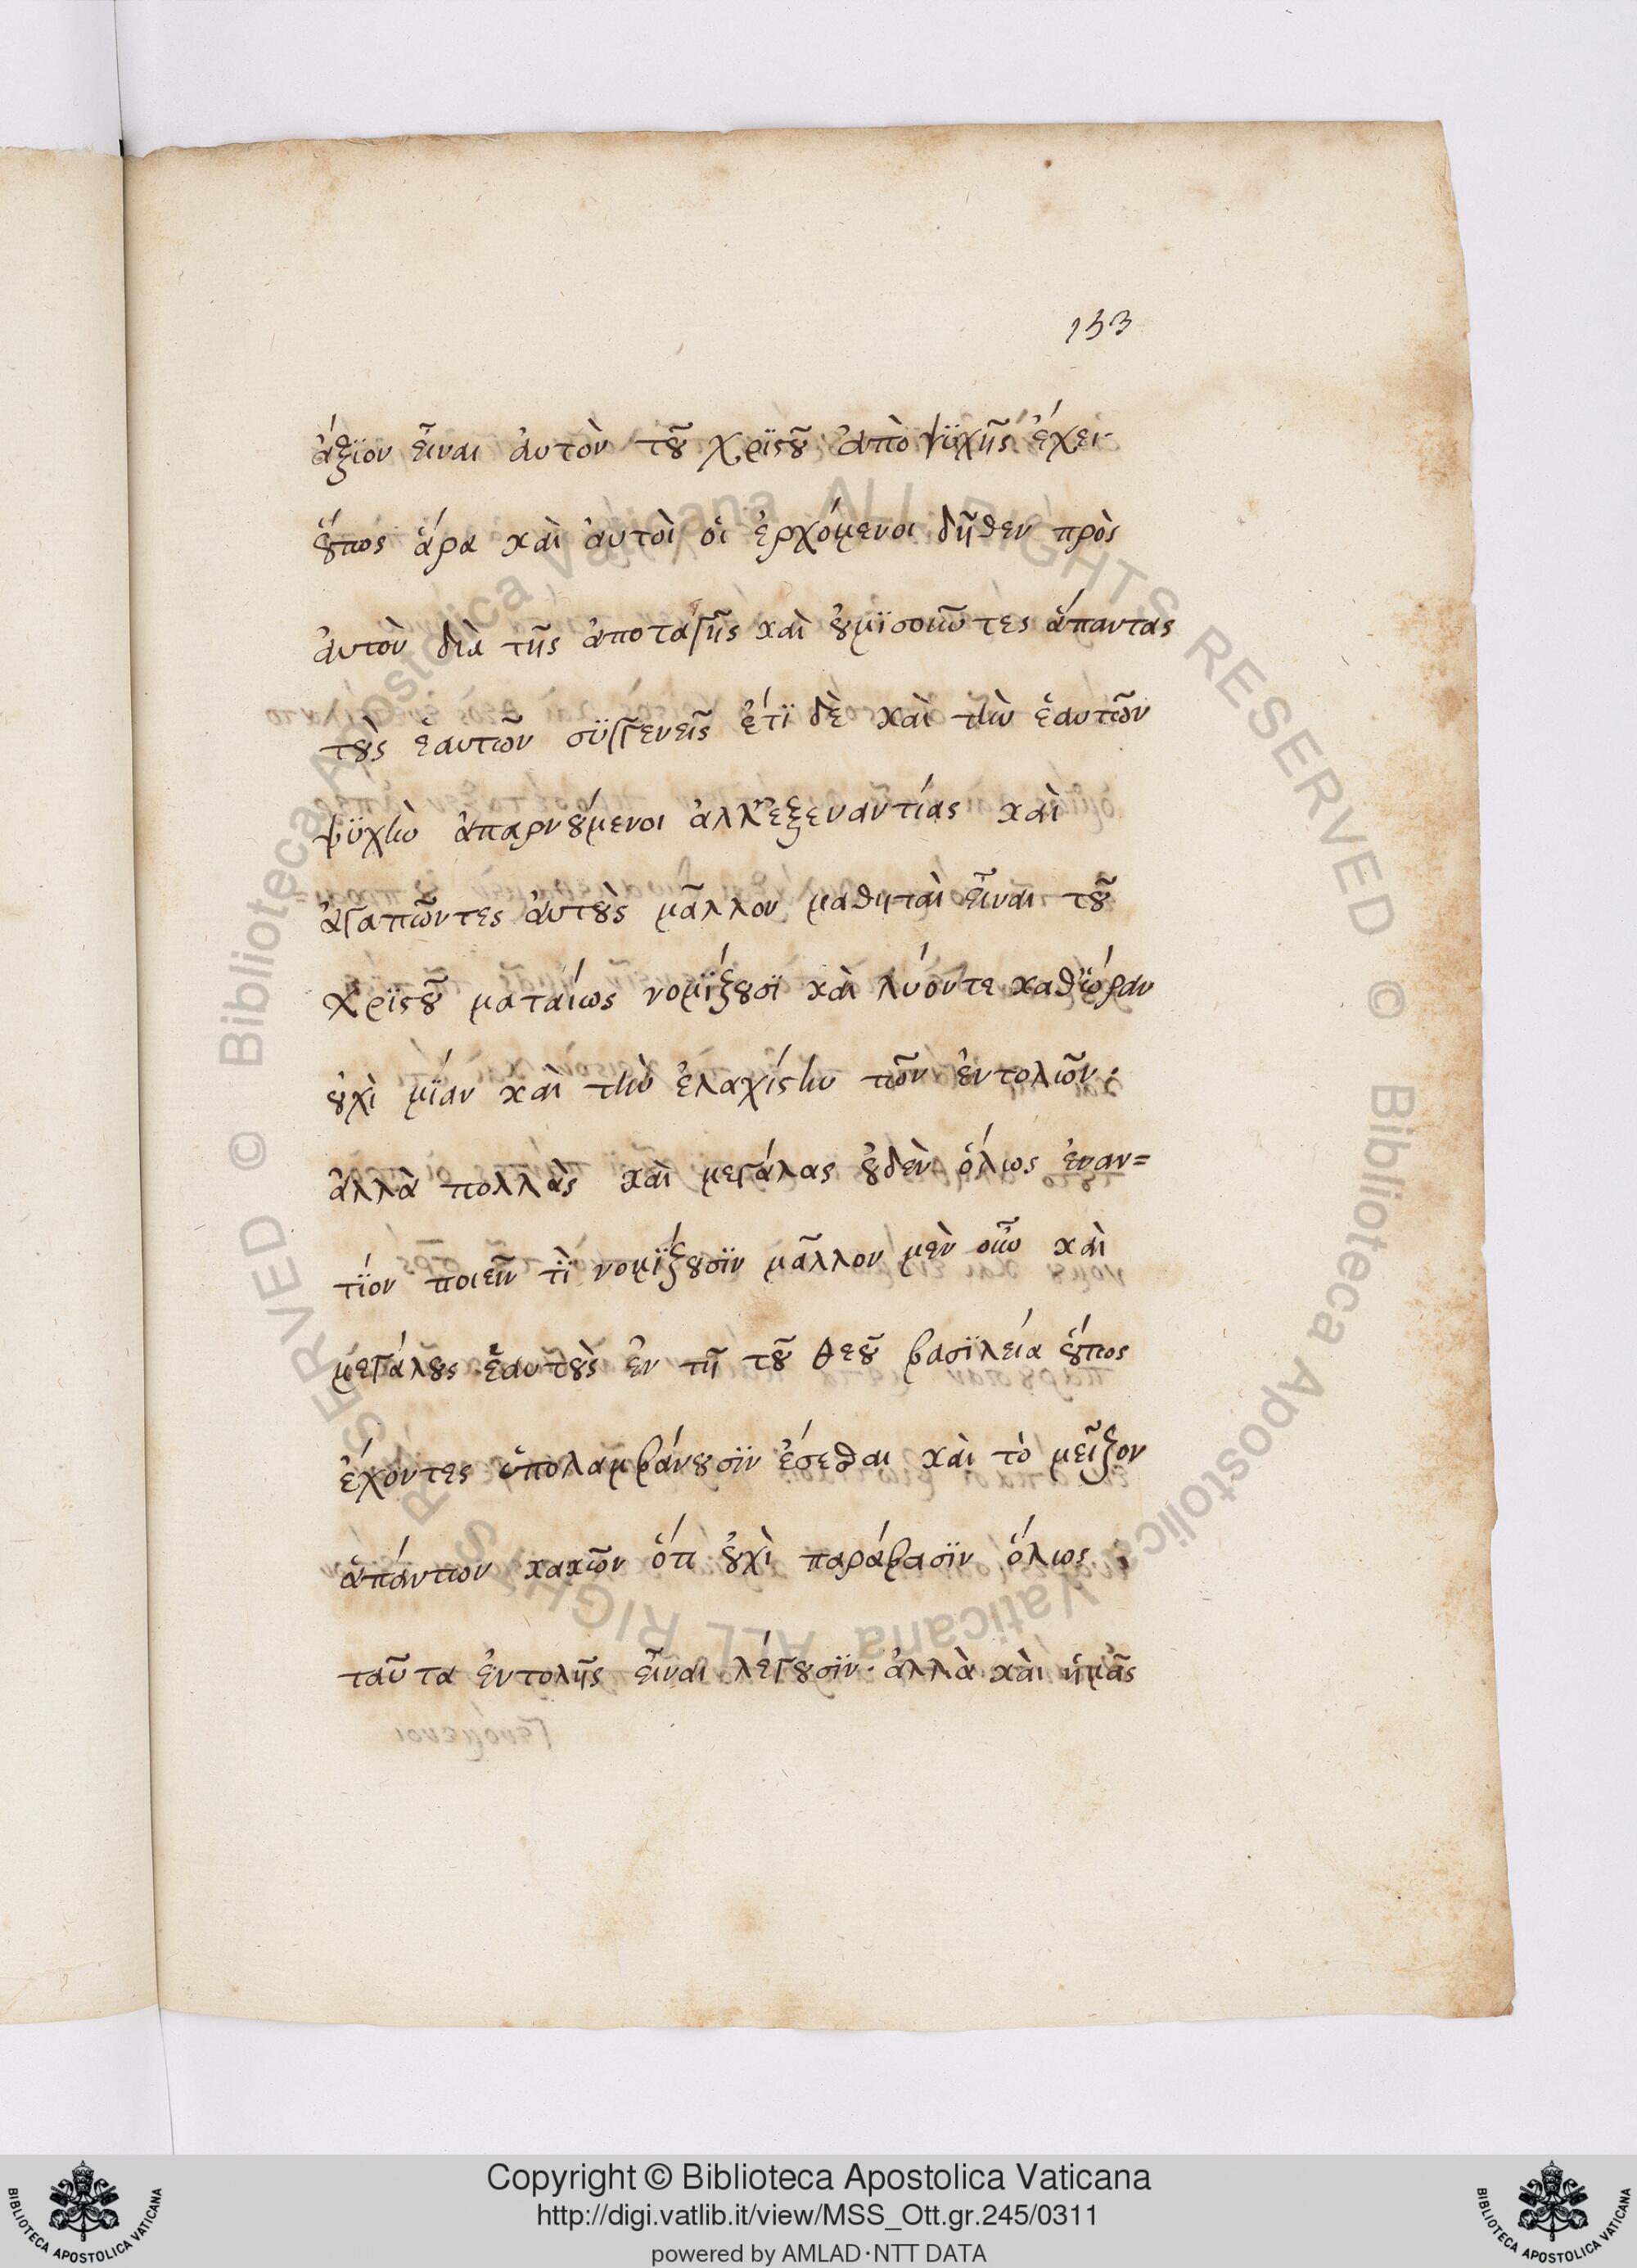 153
ἄξϊον εἶναι ἀυτὸν τοῦ Χρϊστοῦ ἀπὸ ψϋχῆς ἔχει·
ὅυπως ἄρα καὶ ἀυτοὶ οἱ ἐρχόμενοι δῆθεν πρὸς
ἀυτὸν δϊὰ τῆς ἀποταγῆς καὶ ὀυμϊσοῦντες ἅπαντας
τοὺς ἑαυτῶν συγγενεῖς ἔτϊ δὲ καὶ τὴν ἑαυτῶν
ψϋχὴν ἀπαρνούμενοι ἀλλ' ἐξεναντίας καὶ
ἀγαπῶντες ἀυτοὺς μᾶλλον μαθηταὶ εἶναι τοῦ
Χρϊστοῦ ματαίως νομΐζουσϊ καὶ λύοντε καθ' ὥραν
οὐχὶ μΐαν καὶ τὴν ἐλαχίστην τῶν ἐντολῶν·
ἀλλὰ πολλὰς καὶ μεγάλας οὐδὲν ὅλως ἐναν=
τΐον ποιεῖν τὶ νομΐζουσϊν μᾶλλον μὲν οὖν καὶ
μεγάλους ἑαυτοὺς ἐν τῇ τοῦ θεοῦ βασϊλεία ὅυπως
ἔχοντες ὑπολαμβάνουσϊν ἔσεσθαι καὶ τὸ μεῖζον
ἁπάντων κακῶν ὅτι οὐχὶ παράβασϊν ὅλως
ταῦτα ἐντολῆς εἶναι λέγουσϊν· ἀλλὰ καὶ ἡμᾶς
Copyright © Biblioteca Apostolica Vaticana
http://digi.vatlib.it/view/MSS_Ott.gr.245/0311
powered by AMLAD·NTT DATA
BIBLIOTECA APOSTOLICA VATICANA
BIBLIOTECA APOSTOLICA VATICANA
© Biblioteca Apostolica Vaticana ALL RIGHTS RESERVED
© Biblioteca Apostolica Vaticana ALL RIGHTS RESERVED